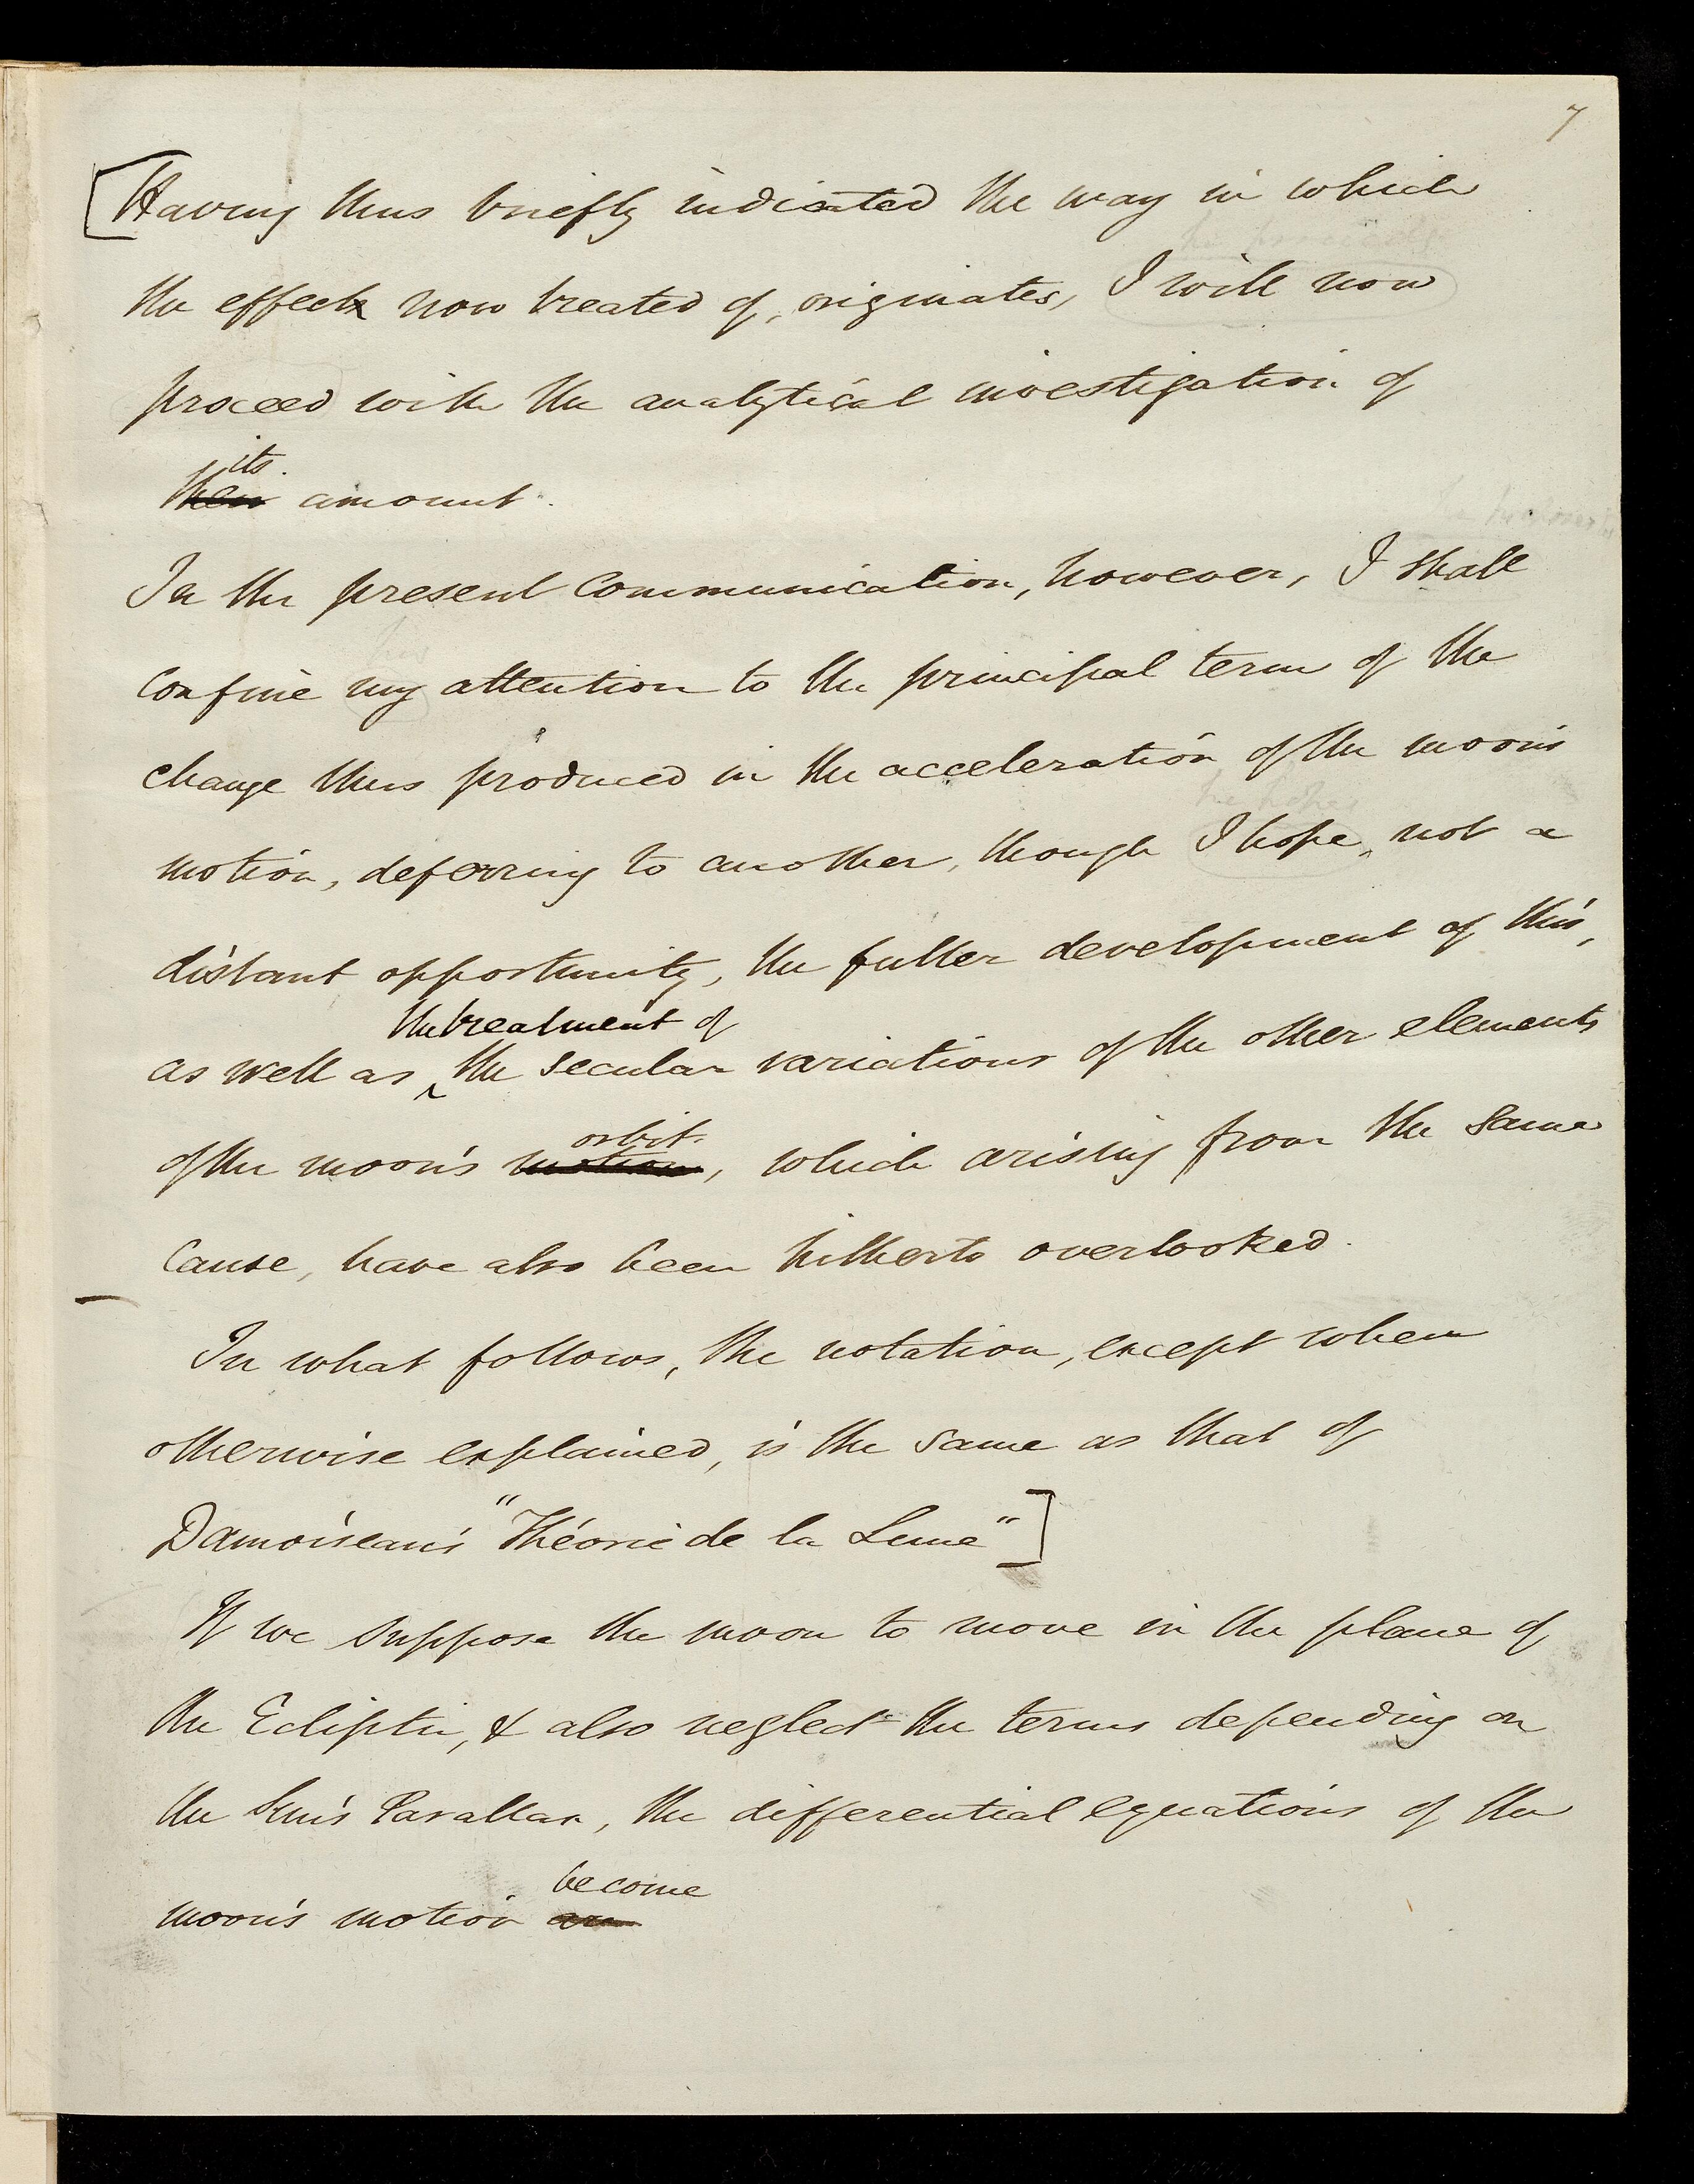 7
[Having thus briefly indicated the way in which
he proceeds
the effect now treated of, originates, I will now
proceed with the analytical investigation of
its
their amount.
In the present communication, however, I shall
his
confine my attention to the principal term of the
change thus produced in the acceleration of the moon's
he hopes
motion, deferring to another, though I hope, not a
distant opportunity, the fuller development of this,
the treatment of
as well as ‸ the secular variations of the other elements
orbit
of the moon's motion, which arising from the same
cause, have also been hitherto overlooked.
In what follows, the notation, except when
otherwise explained, is the same as that of
Damoiseau's "Théorie de la Lune"]
If we suppose the moon to move in the plane of
the Ecliptic, & also neglect the terms depending on
the Sun's Parallax, the differential equations of the
become
moon's motion are